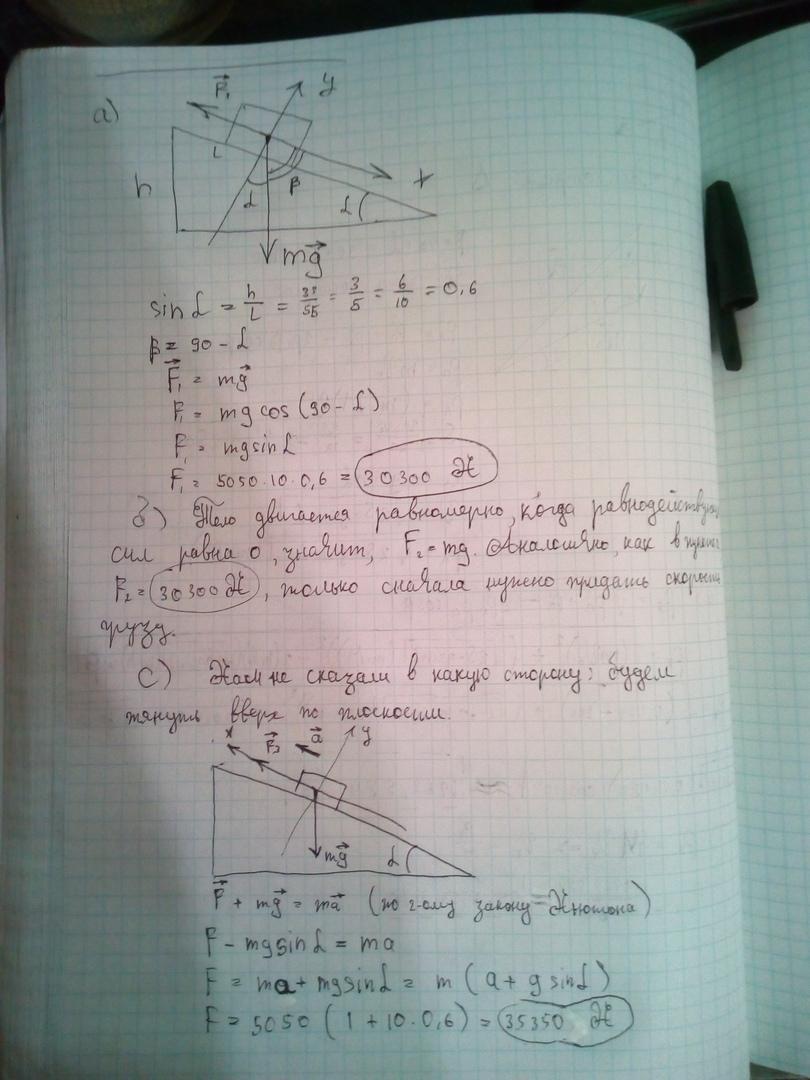 а)
F₁ y
h L α β α x
mg
sin α = h/L = 33/55 = 3/5 = 6/10 = 0,6
β = 90 - α
F₁ = mg
F₁ = mg cos (90 - α)
F₁ = mg sin α
F₁ = 5050 · 10 · 0,6 = 30300 Н
б) Тело двигается равномерно, когда равнодействующая
сил равна 0, значит, F₂ = mg. Аналогично, как в
F₂ = 30300 Н, только сначала нужно придать скорость
грузу.
с) Нам не сказали в какую сторону; будем
тянуть вверх по плоскости.
x F₃ a y
mg α
F + mg = ma (по 2-ому закону Ньютона)
F - mg sin α = ma
F = ma + mg sin α = m (a + g sin α)
F = 5050 (1 + 10 · 0,6) = 35350 Н